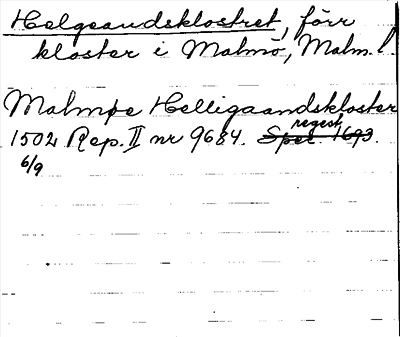 Helgeandsklostret, förr
kloster i Malmö, Malm. l.
Malmøe Helligaandskloster
1502 Rep. II nr 9684. Spec. regest. 1693.
6/9